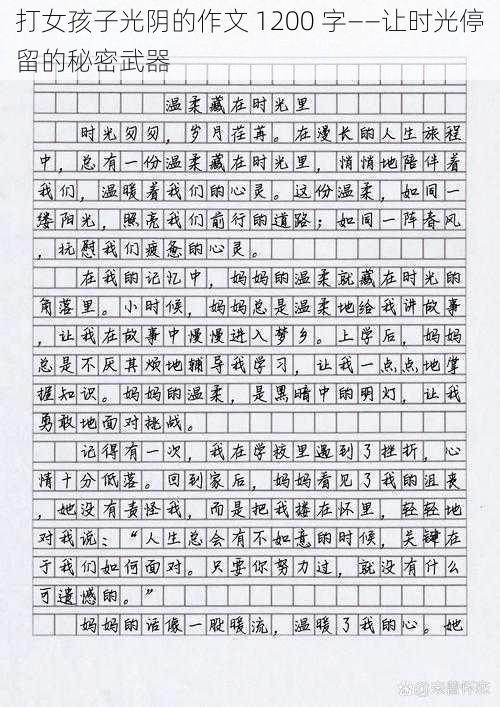 打女孩子光阴的作文 1200 字——让时光停
留的秘密武器
温柔藏在时光里
时光匆匆，岁月荏苒。在漫长的人生旅程
中，总有一份温柔藏在时光里，悄悄地陪伴着
我们，温暖着我们的心灵。这份温柔，如同一
缕阳光，照亮我们前行的道路；如同一阵春风
，抚慰我们疲惫的心灵。
在我的记忆中，妈妈的温柔就藏在时光的
角落里。小时候，妈妈总是温柔地给我讲故事
，让我在故事中慢慢进入梦乡。上学后，妈妈
总是不厌其烦地辅导我学习，让我一点点地掌
握知识。妈妈的温柔，是黑暗中的明灯，让我
勇敢地面对挑战。
记得有一次，我在学校里遇到了挫折，心
情十分低落。回到家后，妈妈看见了我的沮丧
，她没有责怪我，而是把我搂在怀里，轻轻地
对我说：“人生总会有不如意的时候，关键在
于我们如何面对。只要你努力过，就没有什么
可遗憾的。”
妈妈的话像一股暖流，温暖了我的心。她